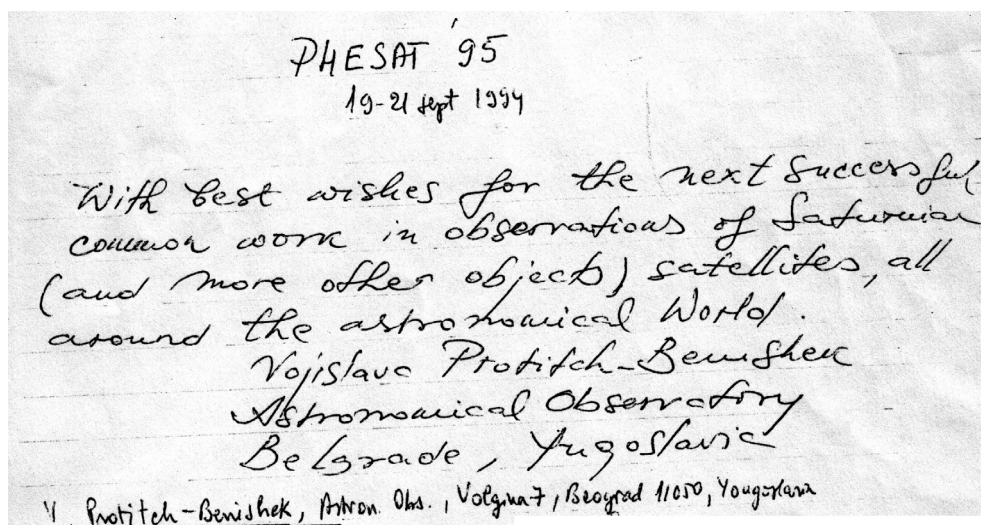 PHESAT '95
19-21 sept 1994
With best wishes for the next successful
common work in observations of Saturnian
(and more other objects) satellites, all
around the astronomical World.
Vojislava Protitch-Benishek
Astronomical Observatory
Belgrade, Yugoslavia
Protitch-Benishek, Astron. Obs., Volgina 7, Beograd 11050, Yougoslavia